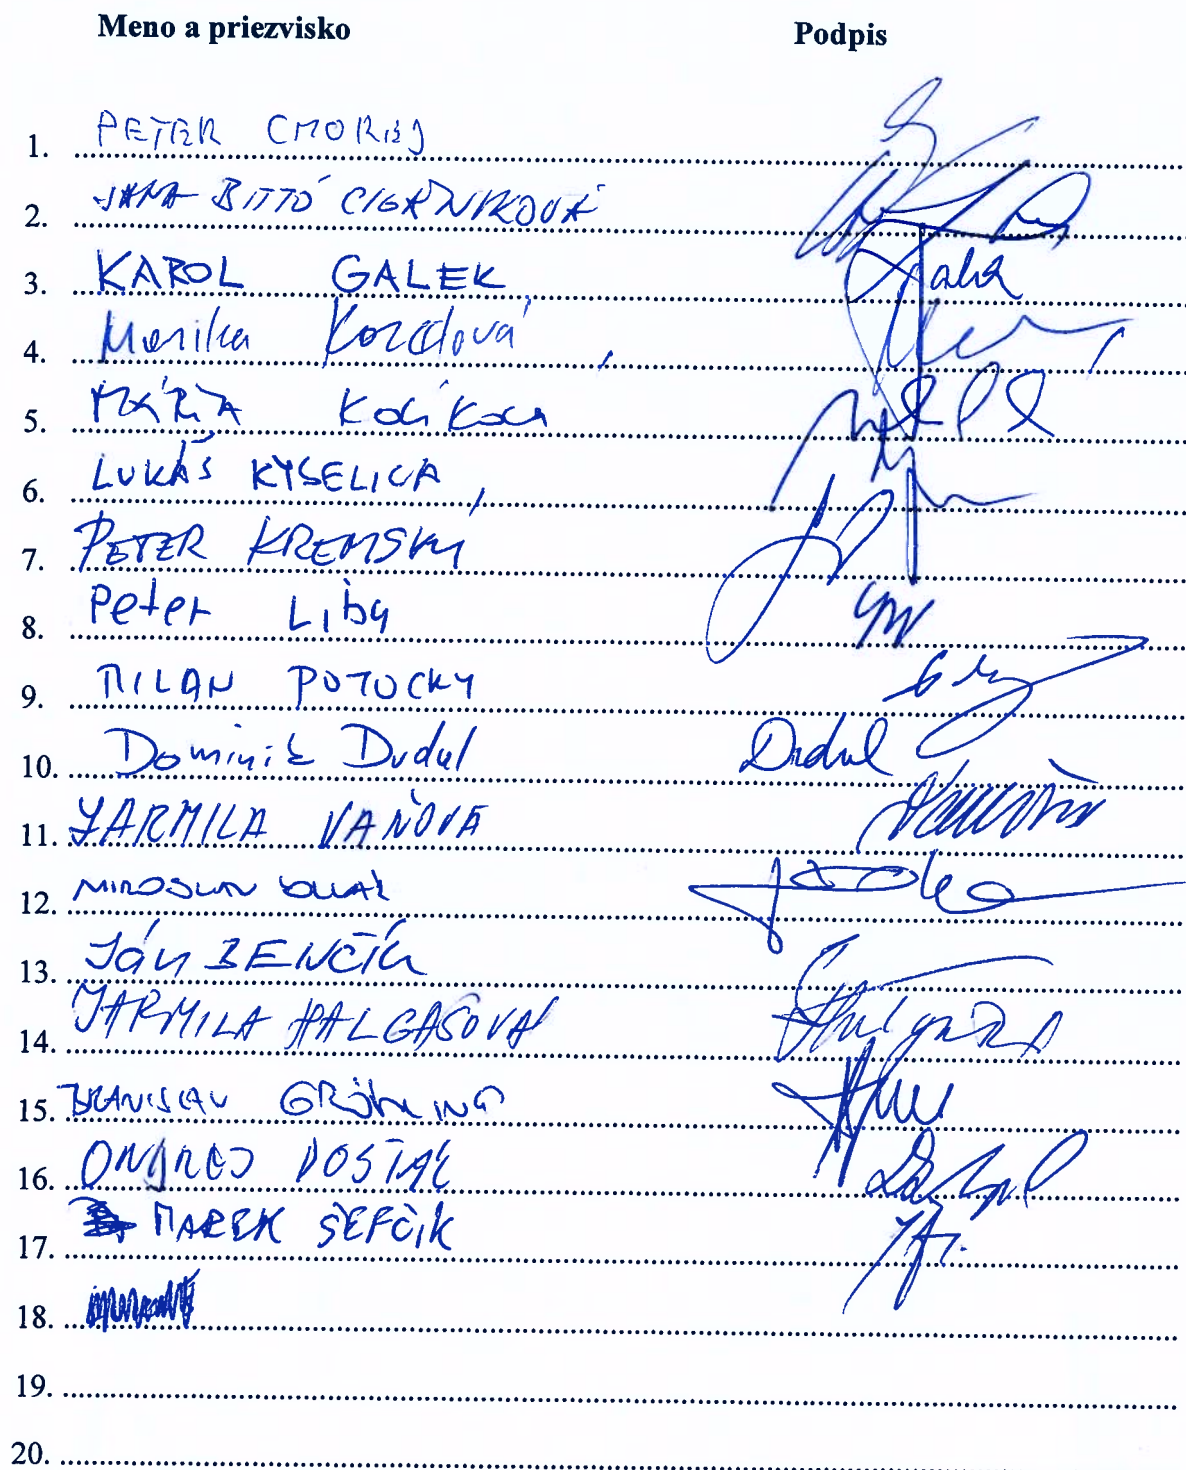 Meno a priezvisko Podpis
1. PETER CMOREJ
2. JANA BITTÓ CIGÁNIKOVÁ
3. KAROL GALEK
4. Monika Kozelová
5. MÁRIA Kolíková
6. LUKÁŠ KYSELICA
7. PETER KREMSKÝ
8. Peter Liba
9. MILAN POTOCKÝ
10. Dominik Drdul Drdul
11. JARMILA VAŇOVÁ
12. MIROSLAV
13. Ján BENČÍK
14. JARMILA HALGAŠOVÁ
15. BRANISLAV GRÖHLING
16. ONDREJ DOSTÁL
17. MAREK ŠEFČÍK
18.
19.
20.